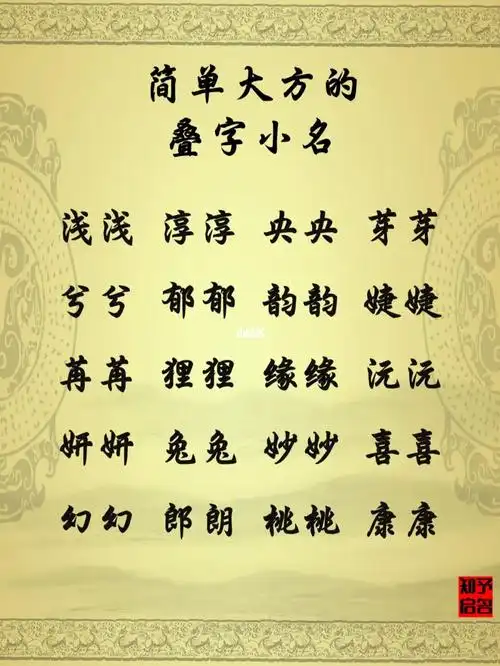 简单大方的
叠字小名
浅浅 淳淳 央央 芽芽
兮兮 郁郁 韵韵 婕婕
苒苒 狸狸 缘缘 沅沅
妍妍 兔兔 妙妙 喜喜
幻幻 郎朗 桃桃 康康
知予
启名